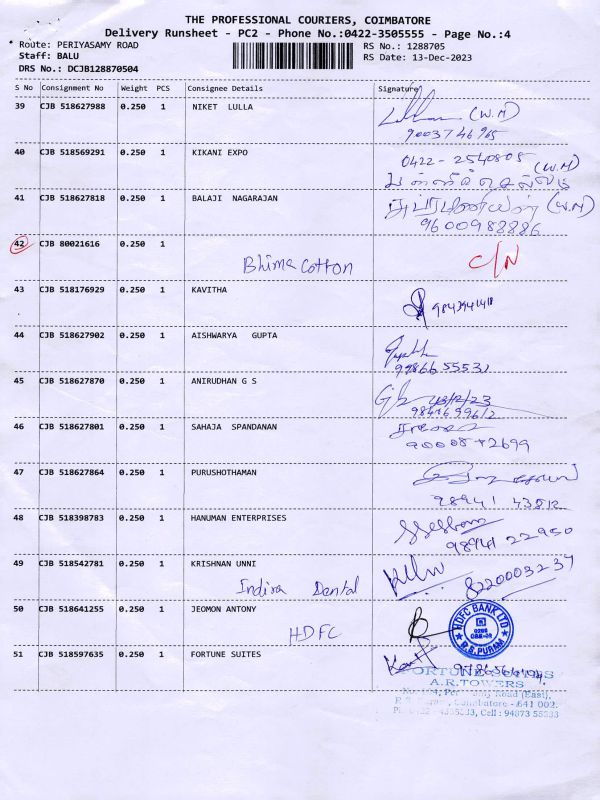 THE PROFESSIONAL COURIERS, COIMBATORE
Delivery Runsheet - PC2 - Phone No.:0422-3505555 - Page No.:4
Route: PERIYASAMY ROAD
RS No.: 1288705
Staff: BALU
RS Date: 13-Dec-2023
DRS No.: DCJB128870504
S No Consignment No Weight PCS Consignee Details Signature
39 CJB 518627988 0.250 1 NIKET LULLA (W.M)
9003746965
40 CJB 518569291 0.250 1 KIKANI EXPO 0422-2540808 (W.M)
41 CJB 518627818 0.250 1 BALAJI NAGARAJAN (W.M)
9600988886
42 CJB 80021616 0.250 1 C/N
Bhima Cotton
43 CJB 518176929 0.250 1 KAVITHA
44 CJB 518627902 0.250 1 AISHWARYA GUPTA
45 CJB 518627870 0.250 1 ANIRUDHAN G S
46 CJB 518627801 0.250 1 SAHAJA SPANDANAN
47 CJB 518627864 0.250 1 PURUSHOTHAMAN
48 CJB 518398783 0.250 1 HANUMAN ENTERPRISES
98941 22950
49 CJB 518542781 0.250 1 KRISHNAN UNNI
Indira Dental 8220003237
50 CJB 518641255 0.250 1 JEOMON ANTONY
HDFC
HDFC BANK LTD
R.S. PURAM
51 CJB 518597635 0.250 1 FORTUNE SUITES
FORTUNE SUITES
A.R.TOWERS
Road (East),
Coimbatore - 641 002.
Cell : 94873 55333